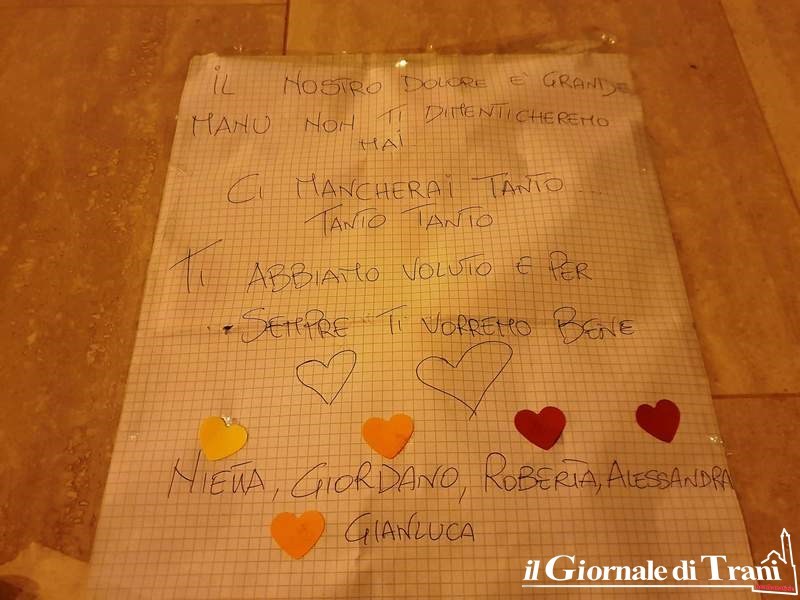 iL NOSTRO DOLORE E' GRANDE
MANU NON TI DIMENTICHEREMO
MAi
Ci MANCHERAi TANTO ...
TANTO TANTO
Ti ABBIAMO VOLUTO E PER
... SEMPRE Ti VORREMO BENE
NIETTA, GIORDANO, ROBERTA, ALESSANDRA
GIANLUCA
il Giornale di Trani